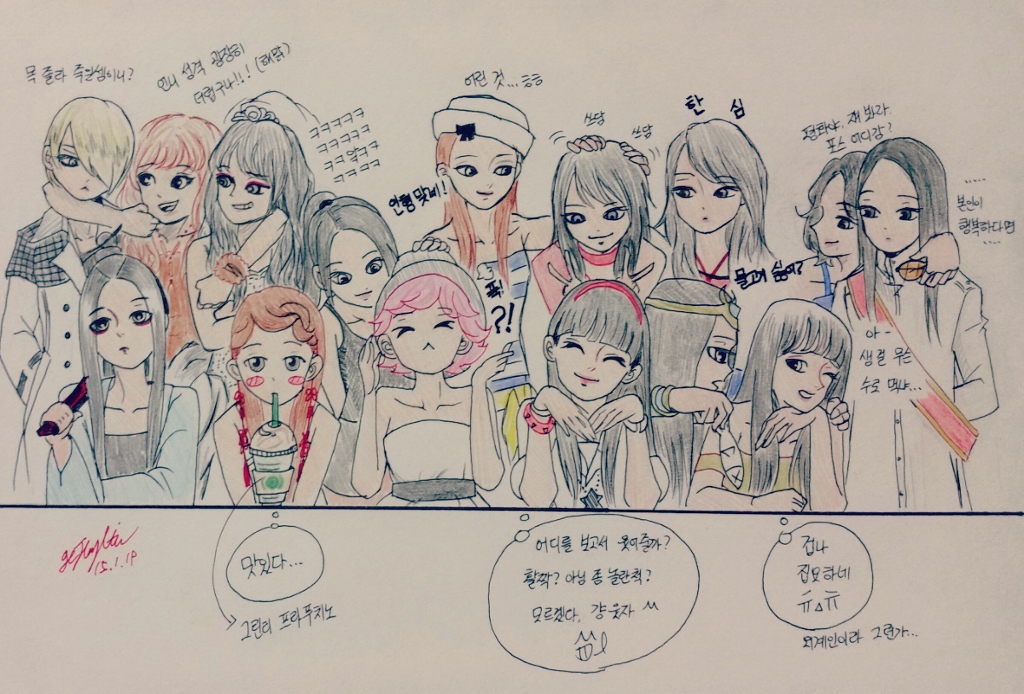 목 졸라 죽일셈이니?
언니 성격 굉장히
더럽구나!!! (해맑)
ㅋㅋㅋㅋㅋ
ㅋㅋㅋㅋ
ㅋㅋ악ㅋㅋ
ㅋㅋㅋㅋ
어린 것... ㅎㅎ
쓰담
쓰담
한 심
정화야, 쟤 봐라.
포스 어디감?
.....
본인이
행복하다면
....
인형 맞네!
푹!
?!
물고기 싫어?
아-
생물 무슨
수로 먹냐...
15.1.19
맛있다...
그린티 프라푸치노
어디를 보고서 웃어줄까?
활짝? 아님 좀 놀란척?
모르겠다, 걍 웃자 ^^
씨익
겁나
집요하네
ㅠㅅㅠ
외계인이라 그런가...